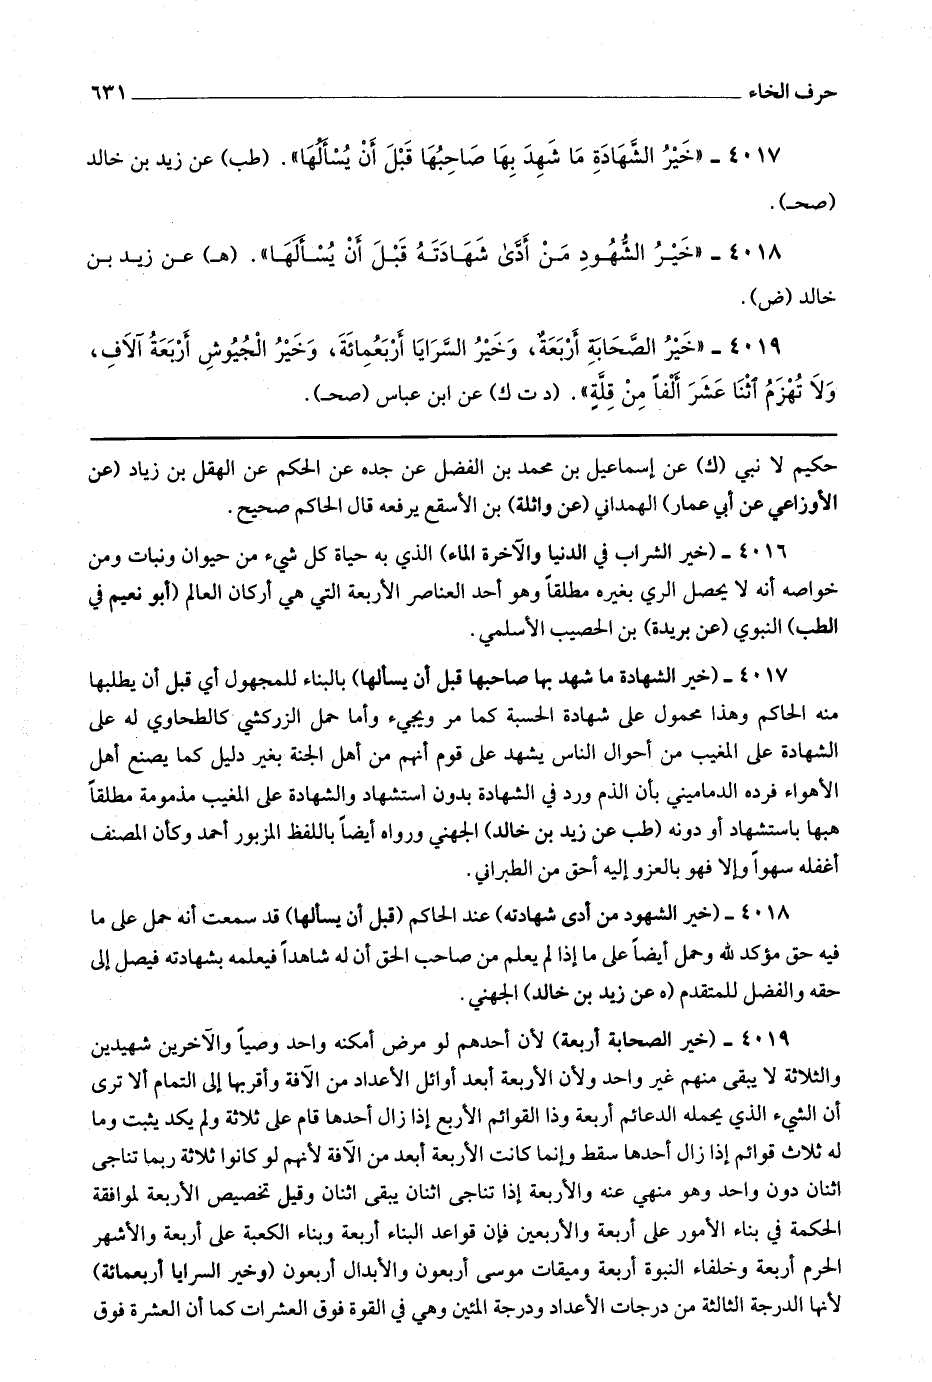 حرف الخاء ٦٣١
٤٠١٧ ـ «خَيْرُ الشَّهَادَةِ مَا شَهِدَ بِهَا صَاحِبُهَا قَبْلَ أَنْ يُسْأَلُهَا». (طب) عن زيد بن خالد
(صحـ).
٤٠١٨ ـ «خَيْرُ الشُّهُودِ مَنْ أَدَّىٰ شَهَادَتَهُ قَبْلَ أَنْ يُسْأَلَهَا». (هـ) عن زيد بن
خالد (ض).
٤٠١٩ ـ «خَيْرُ الصَّحَابَةِ أَرْبَعَةٌ، وَخَيْرُ السَّرَايَا أَرْبَعُمِائَةَ، وَخَيْرُ الْجُيُوشِ أَرْبَعَةُ آلاَفِ،
وَلاَ تُهْزَمُ ٱثْنَا عَشَرَ أَلْفاً مِنْ قِلَّةٍ». (د ت ك) عن ابن عباس (صحـ).
حكيم لا نبي (ك) عن إسماعيل بن محمد بن الفضل عن جده عن الحكم عن الهقل بن زياد (عن
الأوزاعي عن أبي عمار) الهمداني (عن واثلة) بن الأسقع يرفعه قال الحاكم صحيح.
٤٠١٦ ـ (خير الشراب في الدنيا والآخرة الماء) الذي به حياة كل شيء من حيوان ونبات ومن
خواصه أنه لا يحصل الري بغيره مطلقاً وهو أحد العناصر الأربعة التي هي أركان العالم (أبو نعيم في
الطب) النبوي (عن بريدة) بن الحصيب الأسلمي.
٤٠١٧ ـ (خير الشهادة ما شهد بها صاحبها قبل أن يسألها) بالبناء للمجهول أي قبل أن يطلبها
منه الحاكم وهذا محمول على شهادة الحسبة كما مر ويجيء وأما حمل الزركشي كالطحاوي له على
الشهادة على المغيب من أحوال الناس يشهد على قوم أنهم من أهل الجنة بغير دليل كما يصنع أهل
الأهواء فرده الدماميني بأن الذم ورد في الشهادة بدون استشهاد والشهادة على المغيب مذمومة مطلقاً
هبها باستشهاد أو دونه (طب عن زيد بن خالد) الجهني ورواه أيضاً باللفظ المزبور أحمد وكأن المصنف
أغفله سهواً وإلا فهو بالعزو إليه أحق من الطبراني.
٤٠١٨ ـ (خير الشهود من أدى شهادته) عند الحاكم (قبل أن يسألها) قد سمعت أنه حمل على ما
فيه حق مؤكد لله وحمل أيضاً على ما إذا لم يعلم من صاحب الحق أن له شاهداً فيعلمه بشهادته فيصل إلى
حقه والفضل للمتقدم (ه عن زيد بن خالد) الجهني.
٤٠١٩ ـ (خير الصحابة أربعة) لأن أحدهم لو مرض أمكنه واحد وصياً والآخرين شهيدين
والثلاثة لا يبقى منهم غير واحد ولأن الأربعة أبعد أوائل الأعداد من الآفة وأقربها إلى التمام ألا ترى
أن الشيء الذي يحمله الدعائم أربعة وذا القوائم الأربع إذا زال أحدها قام على ثلاثة ولم يكد يثبت وما
له ثلاث قوائم إذا زال أحدها سقط وإنما كانت الأربعة أبعد من الآفة لأنهم لو كانوا ثلاثة ربما تناجى
اثنان دون واحد وهو منهي عنه والأربعة إذا تناجى اثنان يبقى اثنان وقيل تخصيص الأربعة لموافقة
الحكمة في بناء الأمور على أربعة والأربعين فإن قواعد البناء أربعة وبناء الكعبة على أربعة والأشهر
الحرم أربعة وخلفاء النبوة أربعة وميقات موسى أربعون والأبدال أربعون (وخير السرايا أربعمائة)
لأنها الدرجة الثالثة من درجات الأعداد ودرجة المئين وهي في القوة فوق العشرات كما أن العشرة فوق